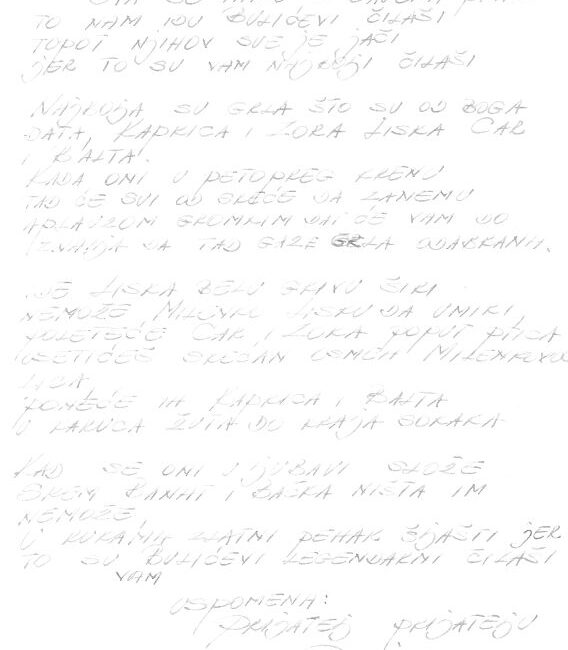 TO NAM IDU BULIĆEVI ČILAŠI
TOPOT NJIHOV SVE JE JAČI
JER TO SU VAM NAJBOLJI ČILAŠI
NAJBOLJA SU GRLA ŠTO SU OD BOGA
DATA, KAPRICA I ZORA LISKA CAR
I BALTA.
KADA ONI U PETOPREG KRENU
TAD ĆE SVI OD SREĆE DA ZANEMU
APLAUZOM GROMKIM DAĆE VAM DO
ZNANJA DA TAD GAZE GRLA ODABRANA.
LISKA BELU GRIVU ŠIRI
NEMOŽE MILENKO LISKU DA UMIRI
POLETEĆE CAR I ZORA POPUT PTICA
OSETIĆEŠ SREĆAN OSMEH MILENKOVOG
LICA
PONEĆE IH KAPRICA I BALTA
U KARUCA ŽUTA DO KRAJA SOKAKA
KAD SE ONI U LJUBAVI SLOŽE
SREM BANAT I BAČKA NIŠTA IM
NEMOŽE
U RUKAMA ZLATNI PEHAR JER
TO SU BULIĆEVI LEGENDARNI ČILAŠI
VAM
USPOMENA:
PRIJATELJ PRIJATELJU